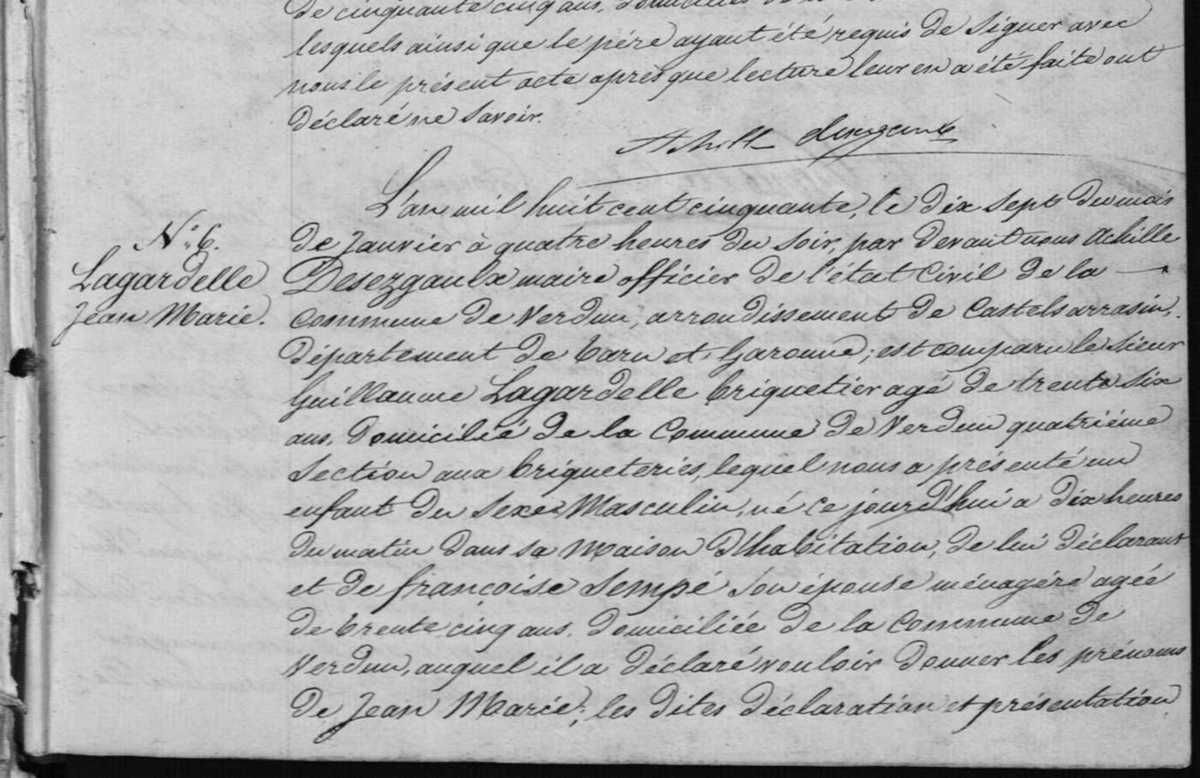 de cinquante cinq ans, domiciliés
lesquels ainsi que le père ayant été requis de signer avec
nous le présent acte après que lecture leur en a été faite ont
déclaré ne savoir.
N.º 6.
Lagardelle
Jean Marie.
L'an mil huit cent cinquante, le dix sept du mois
de Janvier à quatre heures du soir, par devant nous Achille
Desezgaulx maire officier de l'état Civil de la —
Commune de Verdun, arrondissement de Castelsarrasin,
département de tarn et Garonne; est comparu le sieur
Guillaume Lagardelle briquetier agé de trente six
ans, domicilié de la Commune de Verdun quatrième
Section aux briqueteries, lequel nous a présenté un
enfant du Sexe Masculin, né ce jourd'hui a dix heures
du matin dans sa Maison d'habitation, de lui déclarant
et de françoise Sempé son épouse ménagère agée
de trente cinq ans, domiciliée de la Commune de
Verdun, auquel il a déclaré vouloir donner les prénoms
de Jean Marie; les dites déclaration et présentation